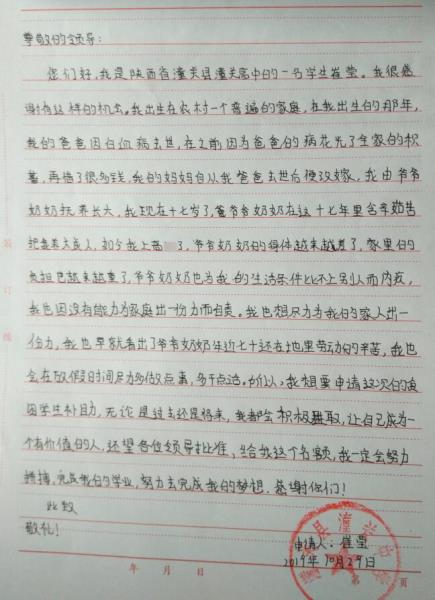 尊敬的领导:
您们好,我是陕西省潼关县潼关高中的一名学生崔莹。我很感
谢有这样的机会。我出生在农村一个普遍的家庭,在我出生的那年,
我的爸爸因白血病去世,在之前因为爸爸的病花光了全家的积
蓄,再借了很多钱,我的妈妈自从我爸爸去世后便改嫁,我由爷爷
奶奶抚养长大,我现在十七岁了,爷爷奶奶在这十七年里含辛茹苦
把我养大成人,如今我上高 了,爷爷奶奶的身体越来越差了,家里的
负担也越来越重了,爷爷奶奶也为我的生活条件比不上别人而内疚,
我也因没有能力为家庭出一份力而自责。我也想尽力为我的家人出一
份力,我也早就看出了爷爷奶奶年近七十还在地里劳动的辛苦,我也
会在放假时间尽力多做点事,多干点活。所以,我想要申请这次的贫
困学生补助,无论是过去还是将来,我都会积极进取,让自己成为一
个有价值的人,还望各位领导批准,给我这个名额,我一定会努力
拼搏,完成我的学业,努力去完成我的梦想,感谢你们!
此致
敬礼!
申请人:崔莹
2019年10月29日
年 月 日 第 页
装订线